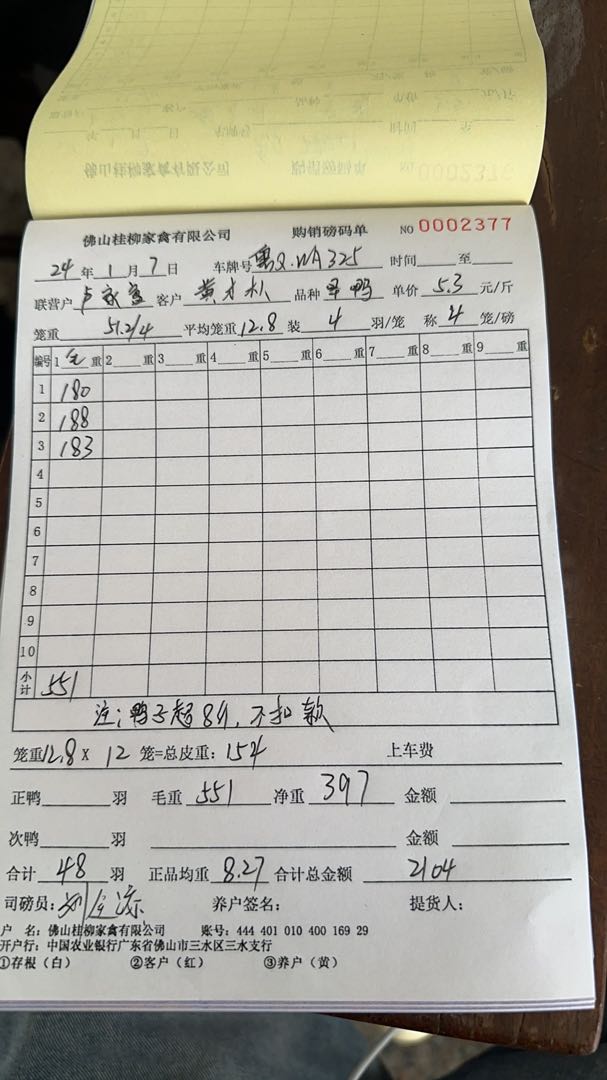 佛山桂柳家禽有限公司 购销磅码单 NO 0002377
24年1月7日 车牌号 WA325 时间 至
联营户 卢 客户 黄 品种 鸭 单价 5.3 元/斤
笼重 51.2/4 平均笼重 12.8 装 4 羽/笼 称 4 笼/磅
编号 1 重 2 重 3 重 4 重 5 重 6 重 7 重 8 重 9 重
1 180
2 188
3 183
4
5
6
7
8
9
10
小计 551
注:鸭子超8斤,不扣款
笼重12.8 X 12 笼=总皮重: 154 上车费
正鸭 羽 毛重 551 净重 397 金额
次鸭 羽 金额
合计 48 羽 正品均重 8.27 合计总金额 2104
司磅员: 刘 养户签名: 提货人:
户 名: 佛山桂柳家禽有限公司 账号: 444 401 010 400 169 29
开户行: 中国农业银行广东省佛山市三水区三水支行
①存根(白) ②客户(红) ③养户(黄)